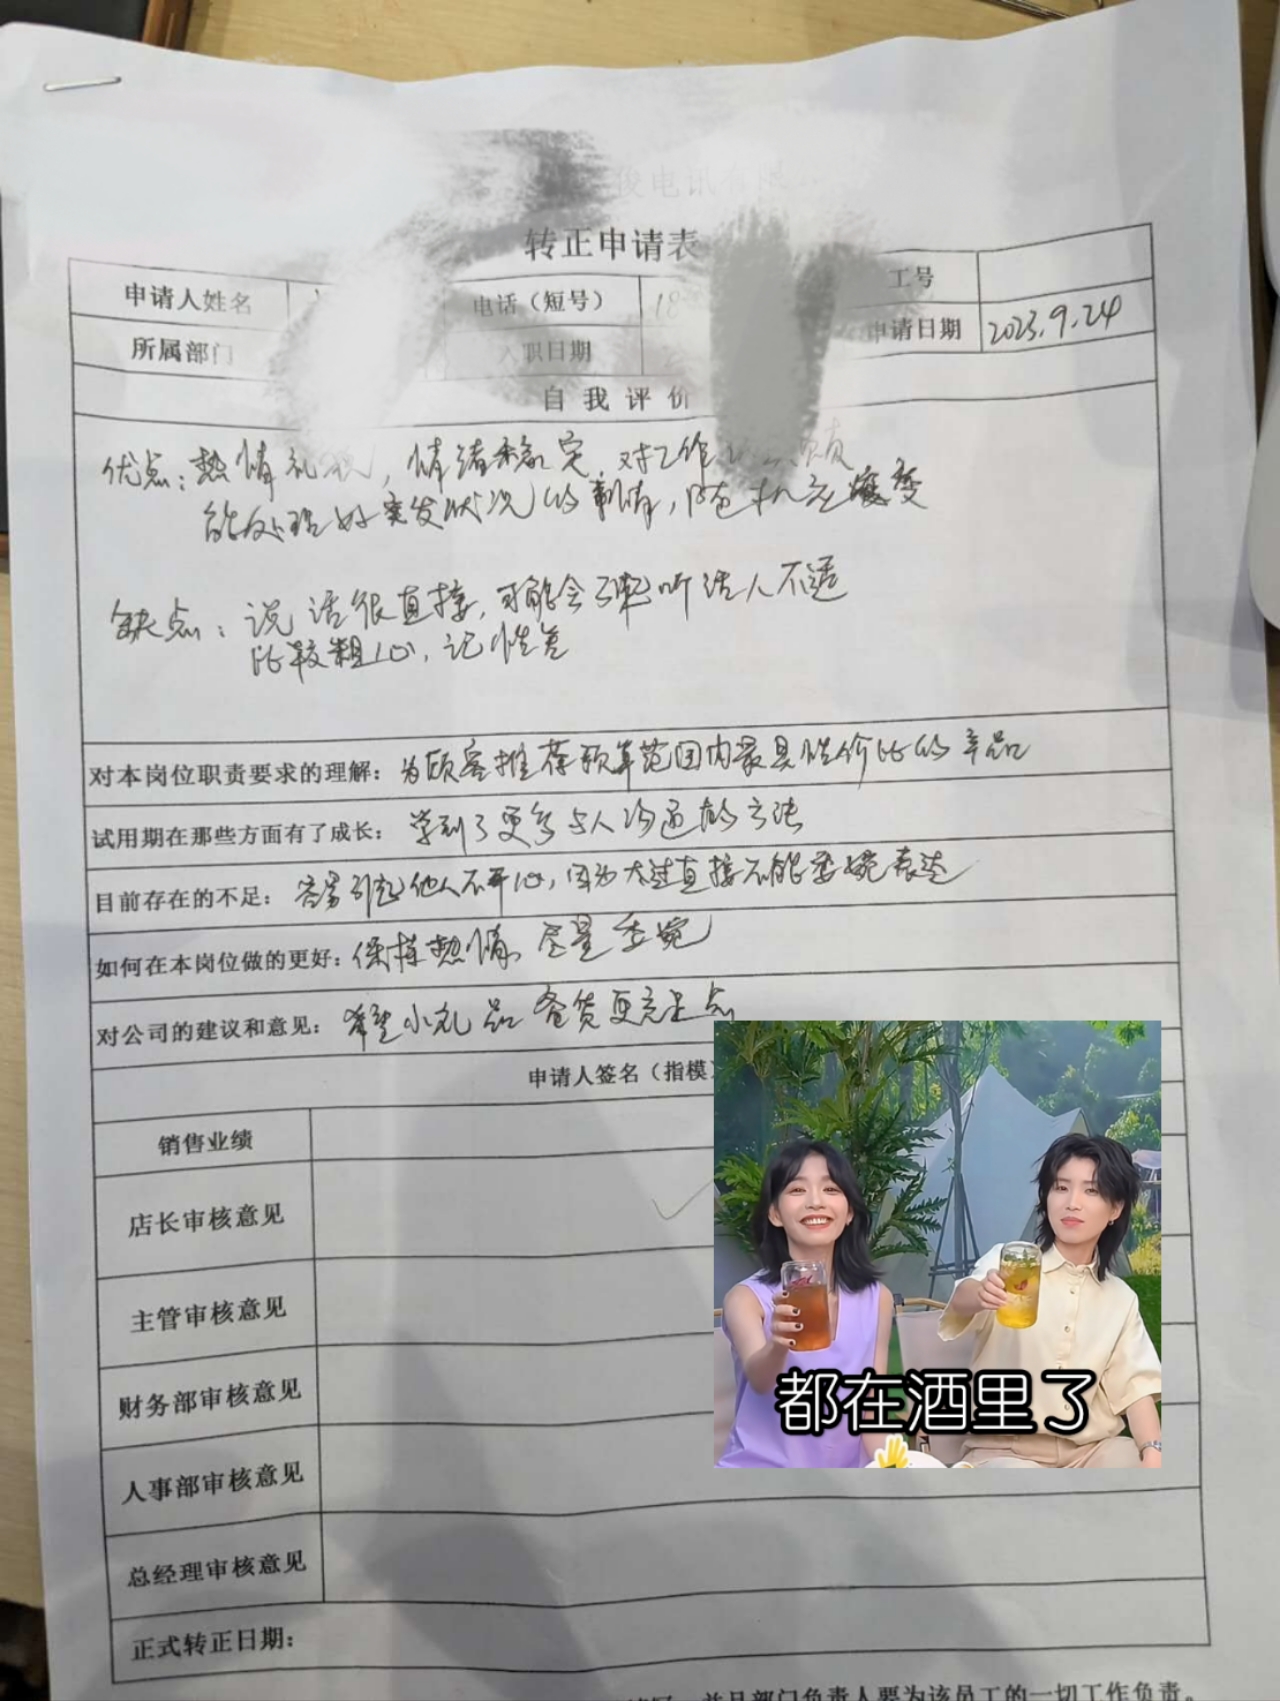 俊电讯有限
转正申请表
申请人姓名 电话（短号） 18 工号
所属部门 入职日期 申请日期 2023.9.24
自我评价
优点：热情礼貌，情绪稳定，对工作 负责
能处理好突发状况的事情，随机应变
缺点：说话很直接，可能会引起听话人不适
比较粗心，记性差
对本岗位职责要求的理解：为顾客推荐预算范围内最具性价比的产品
试用期在那些方面有了成长：学到了更多与人沟通的方法
目前存在的不足：容易引起他人不开心，因为太过直接不能委婉表达
如何在本岗位做的更好：保持热情，尽量委婉
对公司的建议和意见：希望小礼品备货更充足点
申请人签名（指模）
销售业绩
店长审核意见
主管审核意见
财务部审核意见
人事部审核意见
总经理审核意见
正式转正日期：
并且部门负责人要为该员工的一切工作负责。
都在酒里了